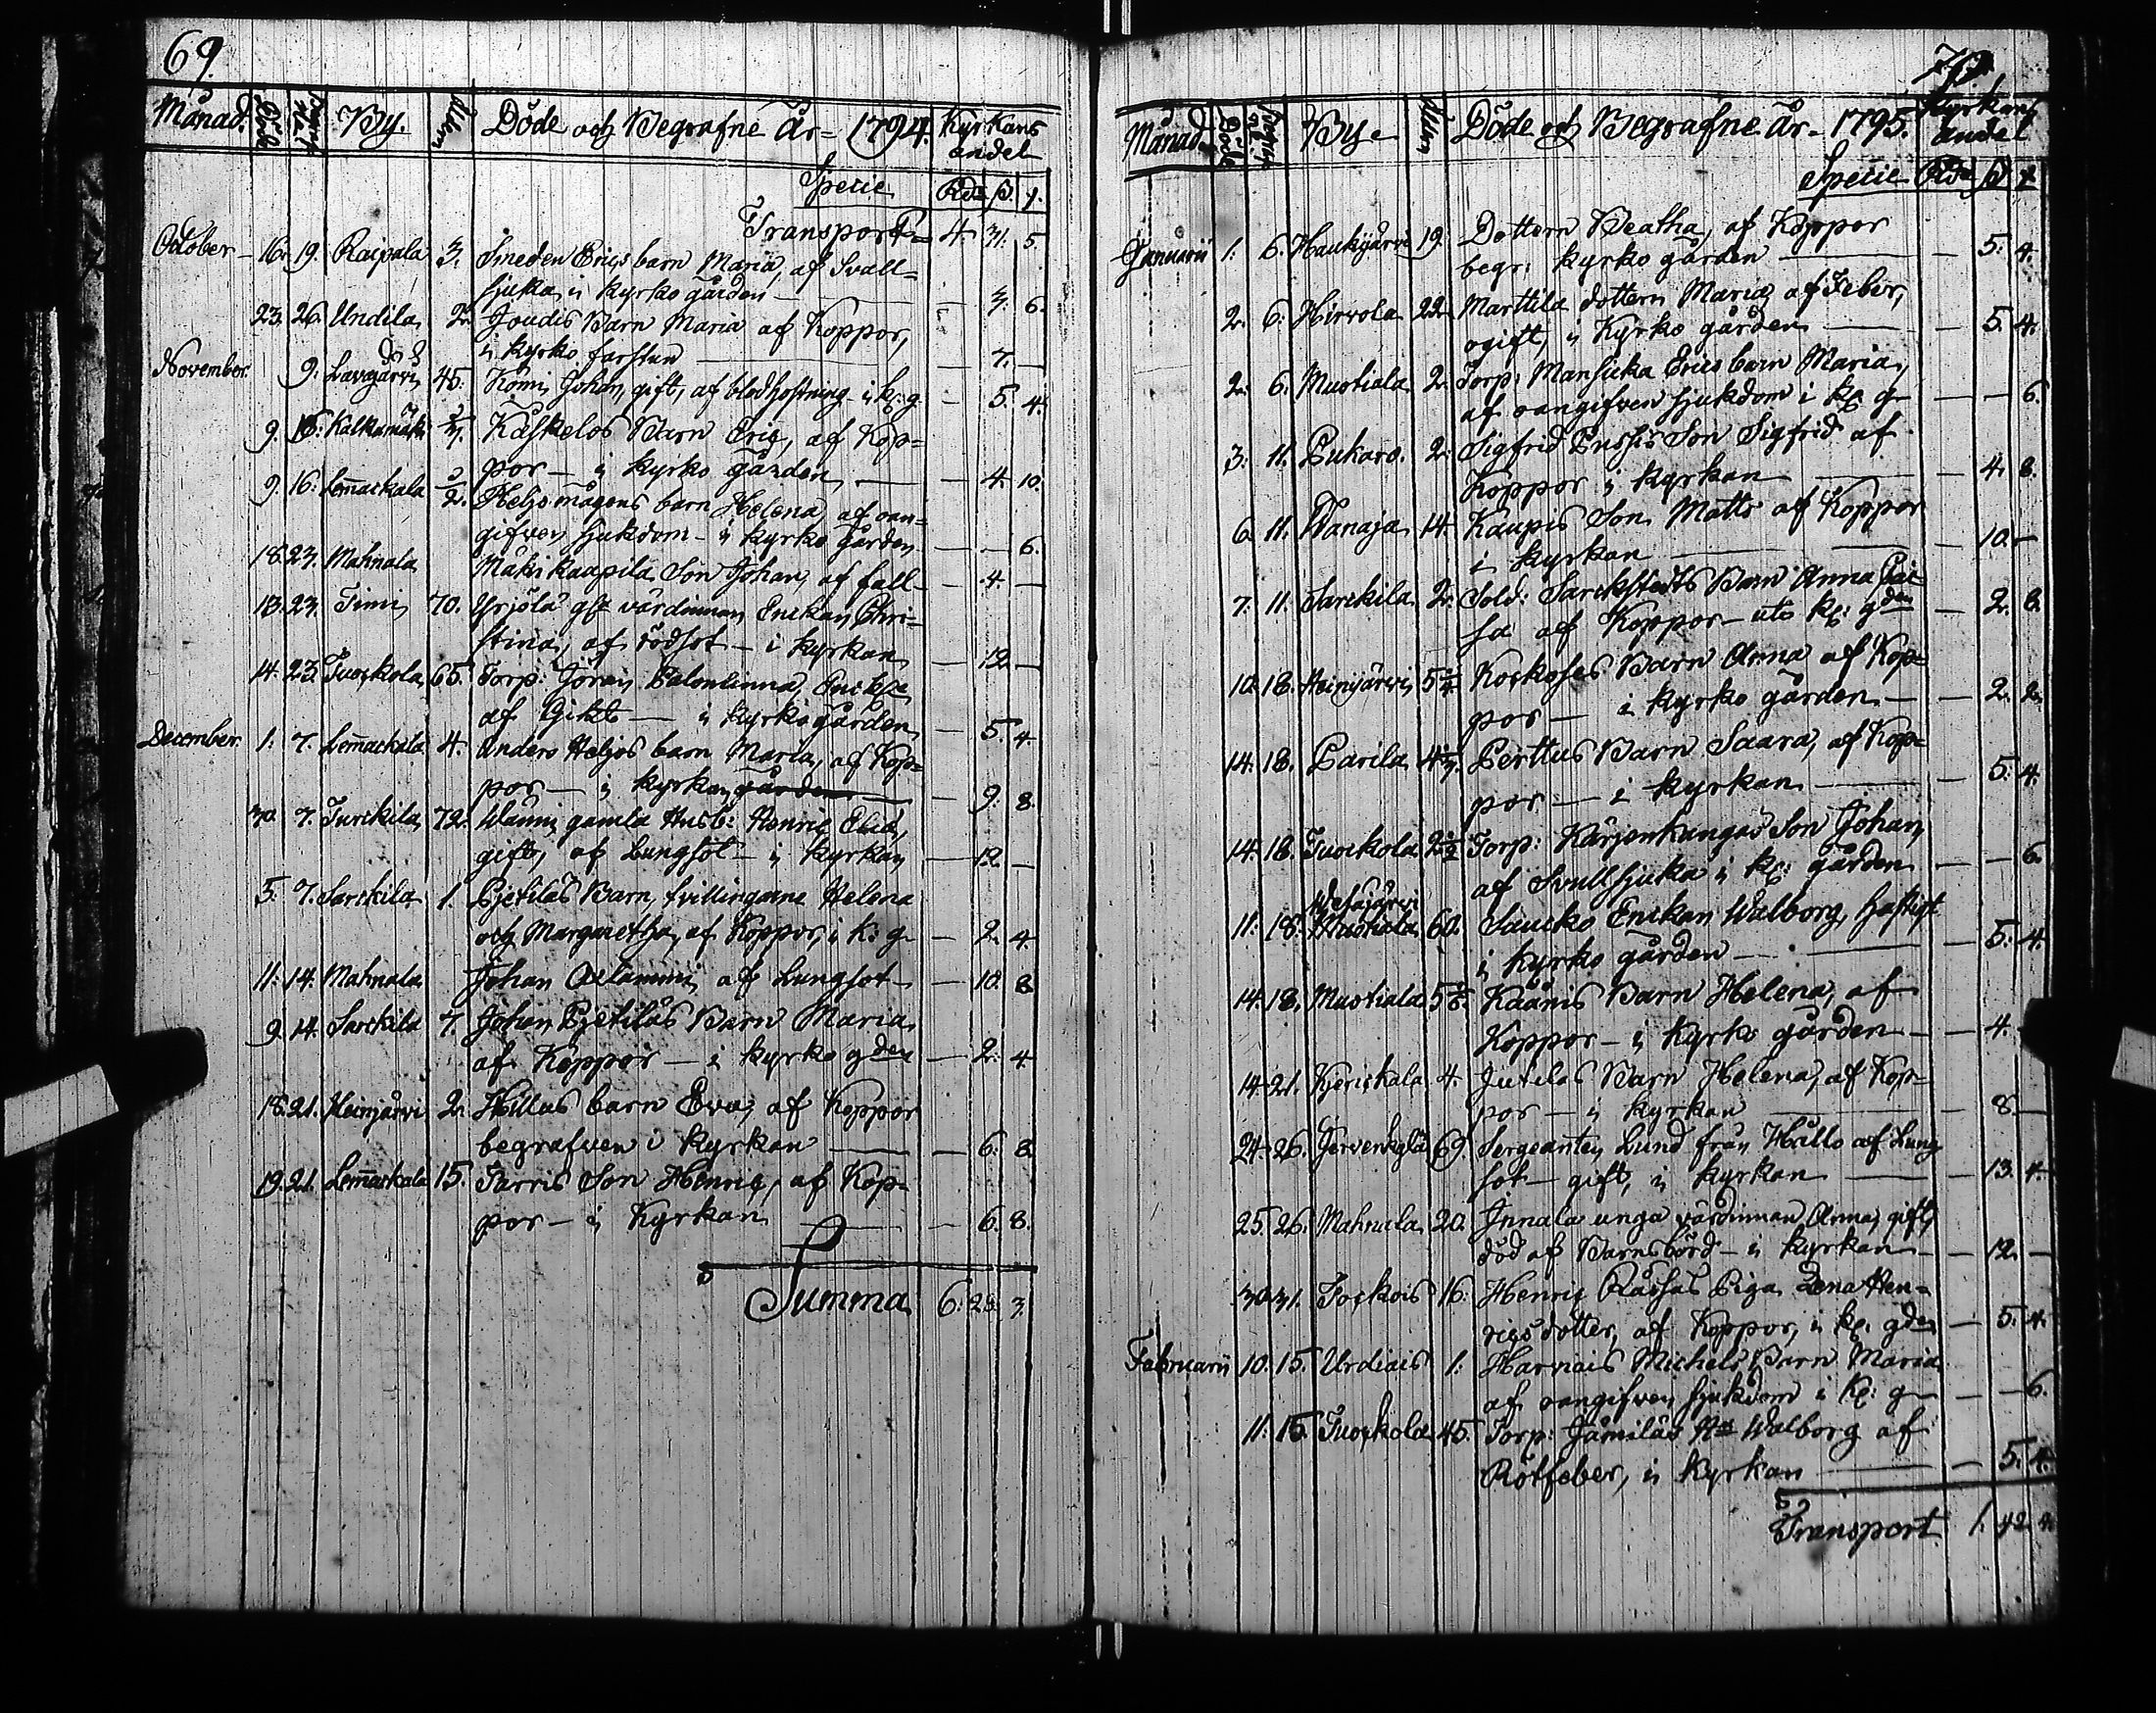 69.
Månad. Döde Begrafne By. Åldern Döde och Begrafne År= 1794. Kyrkans andel
Specie Rdr ß. r.
Transport= 4. 31. 5.
October 16. 19. Raipala 3. Smeden Erics barn Maria, af Svall=
sjuka, i kyrko gården — 3. 6.
23. 26. Undila 2. Joudis Barn Maria af Koppor,
i kyrko farstun — 7. —
November. 9. Lavajärvi 45. Kömi Johan, gift, af blodhostning i k: g. — 5. 4.
9. 16. Kalkamäki Käskelos Barn Eric, af Kop=
por — i kyrko gården, — 4. 10.
9. 16. Lem̄ackala Heljo mågens barn Helena af oan=
gifven sjukdom — i kyrko gården — 6.
18. 23. Mahnala Mäkikaapila Son Johan, af fall — 4. —
18. 23. Timi 70. Yrjölä gla värdinnan Enckan Chri=
stina, af rödsot — i kyrkan — 12. —
14. 23. Tuockola 65. Torp: Jören Palonlinna, Enckl.
af Gikt — i kyrko gården — 5. 4.
December. 1. 7. Lem̄ackala 4. Anders Heljos barn Maria, af Kop=
por — i kyrkan gården — 9. 8.
30. 7. Turckila 72. gamla Husb: Henric
gift, af Lungsot — i kyrkan — 12. —
5. 7. Sarckila 1. Pjetiläs Barn, tvillingarne Helena
och Margaretha, af Koppor, i k: g — 2. 4.
11. 14. Mahnala Johan Alammi af Lungsot — 10. 8.
9. 14. Sarckila 7. Johan Pjetiläs Barn Maria
af Koppor — i kyrko gden — 2. 4.
18. 21. Heinjärvi 2. Hillas barn Eva, af Koppor
begrafven i kyrkan — 6. 8.
19. 21. Lem̄ackala 15. Jarris Son Henric, af Kop=
por — i Kyrkan — 6. 8.
Summa 6. 28. 3.
70.
Månad. Döde Begrafne By. Åldern Döde och Begrafne År= 1795. Kyrkans andel
Specie Rdr ß r
Januarii 1. 6. Haukijärvi 19. Dottern Beatha, af Koppor
begr: kyrko gården — 5. 4.
2. 6. Hirvola 22. Marttila dottern Maria, af Feber,
ogift, i Kyrko gården — 5. 4.
2. 6. Mustiala 2. Torp: Mansicka Erics barn Maria,
af oangifven sjukdom i k: g — 6.
3. 11. Pukaro. 2. Sigfrid Pussis Son Sigfrid af
Koppor i kyrkan — 4. 8.
6. 11. Wanaja 14. Kaupis Son Matts af Koppor
i kyrkan — 10. —
7. 11. Sarckila 2. Sold: Sarckstedts Barn Anna Cai=
sa af Koppor — uti k: gden — 2. 8.
10. 18. Heinjärvi Kockoses Barn Anna af Kop=
por — i kyrko gården — 2. 2.
14. 18. Parila Perttus Barn Saara, af Kop=
por — i kyrkan — 5. 4.
14. 18. Tuockola 2½ Torp: Kärjenkangas Son Johan,
af Svullsjuka i k: gården — 6.
Wesajärvi
11. 18. Mustiala 60. Saucko Enckan Walborg, hastigt
i kyrko gården — 5. 4.
14. 18. Mustiala Kaånis Barn Helena, af
Koppor — i Kyrko gården — 4. —
14. 21. Kyröskala 4. Jutilas Barn Helena, af Kop=
por — i kyrkan — 8. —
24. 26. Jervenkylä 69. Sergeanten Lund från Hållo af Lung
sot — gift, i kyrkan — 13. 4.
25. 26. Mahnala 20. Innala unga värdinnan Anna, gift,
död af Barnsbörd — i kyrkan — 12. —
30. 31. Jockois 16. Henric Rässas Piga Lena Hen=
ricsdotter, af Koppor, i k: gden — 5. 4.
Februarii 10. 15. Urdiais 1. Harviais Michels Barn Maria
af oangifven sjukdom i k: g — 6.
11. 15. Tuockola 45. Torp: Jamiläs Walborg af
Rötfeber, i kyrkan — 5. 4.
Transport 1. 42. 4.